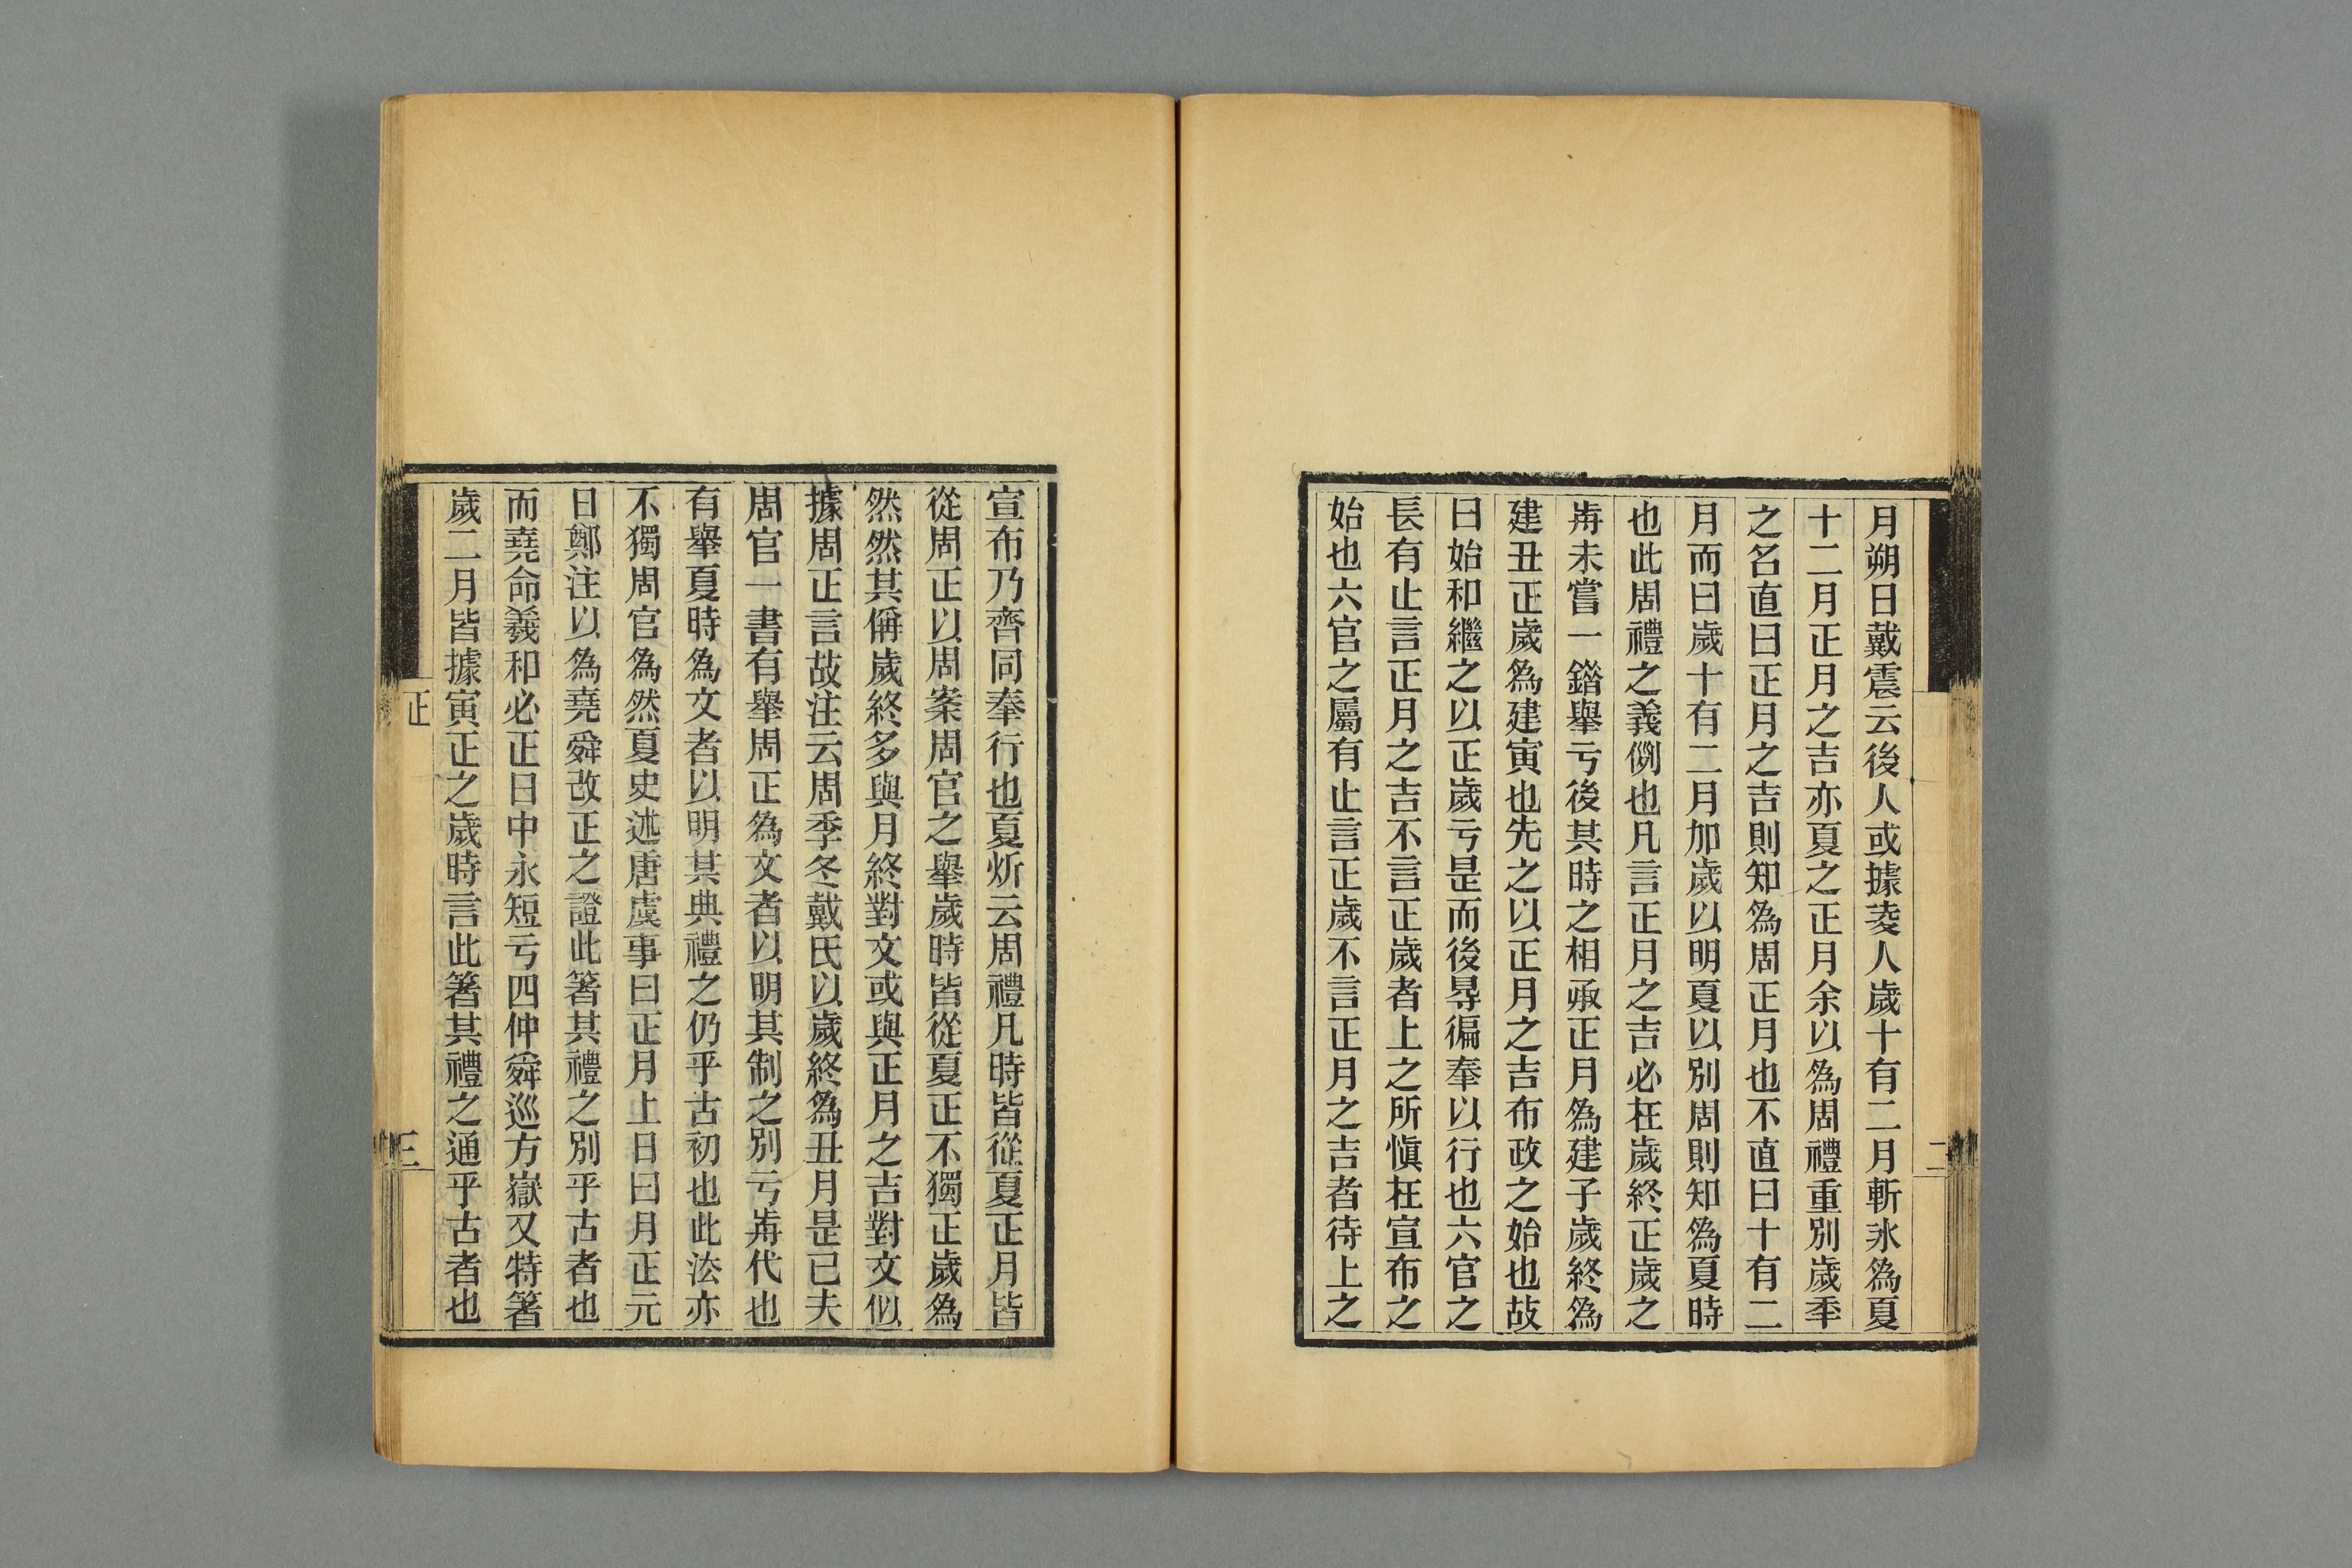 月朔日戴震云後人或據凌人歲十有二月斬冰為夏
十二月正月之吉亦夏之正月余以為周禮重別歲秊
之名直曰正月之吉則知為周正月也不直曰十有二
月而曰歲十有二月加歲以明夏以別周則知為夏時
也此周禮之義例也凡言正月之吉必在歲終正歲之
歬未嘗一錯舉亏後其時之相承正月為建子歲終為
建丑正歲為建寅也先之以正月之吉布政之始也故
曰始和繼之以正歲亏是而後得徧奉以行也六官之
長有止言正月之吉不言正歲者上之所慎在宣布之
始也六官之屬有止言正歲不言正月之吉者待上之
二
宣布乃齊同奉行也夏炘云周禮凡時皆從夏正月皆
從周正以周案周官之舉歲時皆從夏正不獨正歲為
然然其偁歲終多與月終對文或與正月之吉對文似
據周正言故注云周季冬戴氏以歲終為丑月是已夫
周官一書有舉周正為文者以明其制之別亏歬代也
有舉夏時為文者以明其典禮之仍乎古初也此法亦
不獨周官為然夏史述唐虞事曰正月上日曰月正元
日鄭注以為堯舜改正之證此箸其禮之別乎古者也
而堯命羲和必正日中永短亏四仲舜巡方嶽又特箸
歲二月皆據寅正之歲時言此箸其禮之通乎古者也
正
三